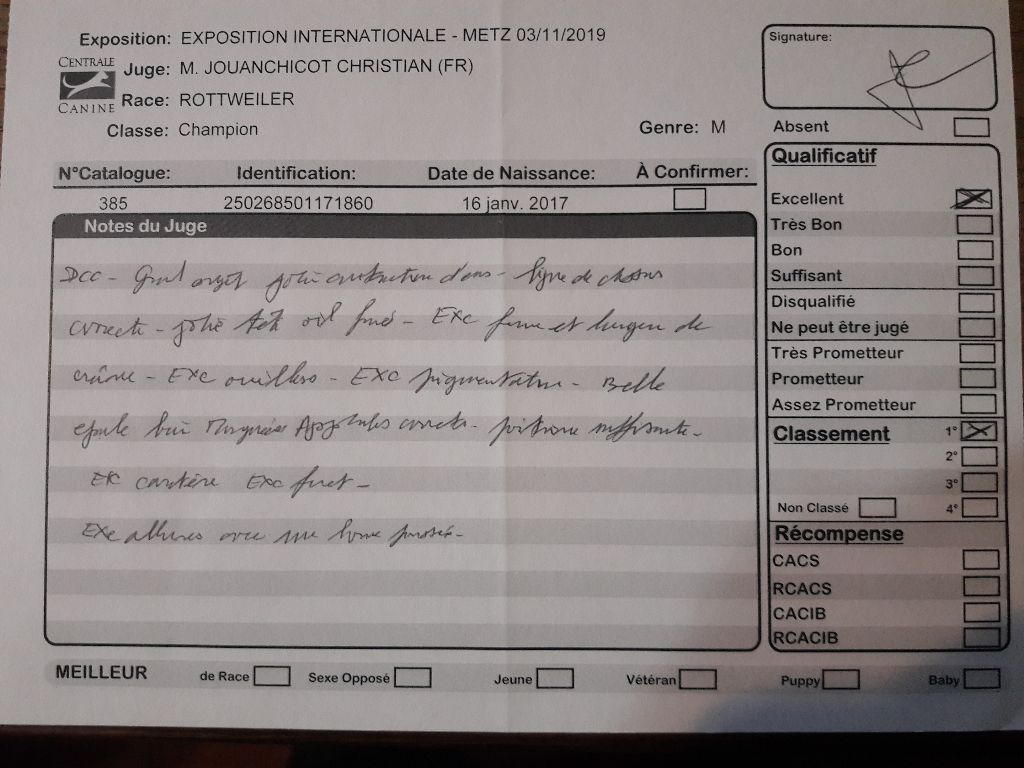 Exposition: EXPOSITION INTERNATIONALE - METZ 03/11/2019
CENTRALE
CANINE
Juge: M. JOUANCHICOT CHRISTIAN (FR)
Race: ROTTWEILER
Classe: Champion
Genre: M
N°Catalogue: Identification: Date de Naissance: À Confirmer:
385 250268501171860 16 janv. 2017
Notes du Juge
DCC - jolie construction - ligne de dessus
correcte - jolie tête oeil foncé - Exc forme et largeur de
crâne - Exc oreilles - Exc pigmentation - Belle
épaule bien correcte - poitrine suffisante -
Exc caractère Exc fouet -
Exc allures avec une bonne poussée -
Signature:
Absent
Qualificatif
Excellent
Très Bon
Bon
Suffisant
Disqualifié
Ne peut être jugé
Très Prometteur
Prometteur
Assez Prometteur
Classement 1°
2°
3°
Non Classé 4°
Récompense
CACS
RCACS
CACIB
RCACIB
MEILLEUR de Race Sexe Opposé Jeune Vétéran Puppy Baby